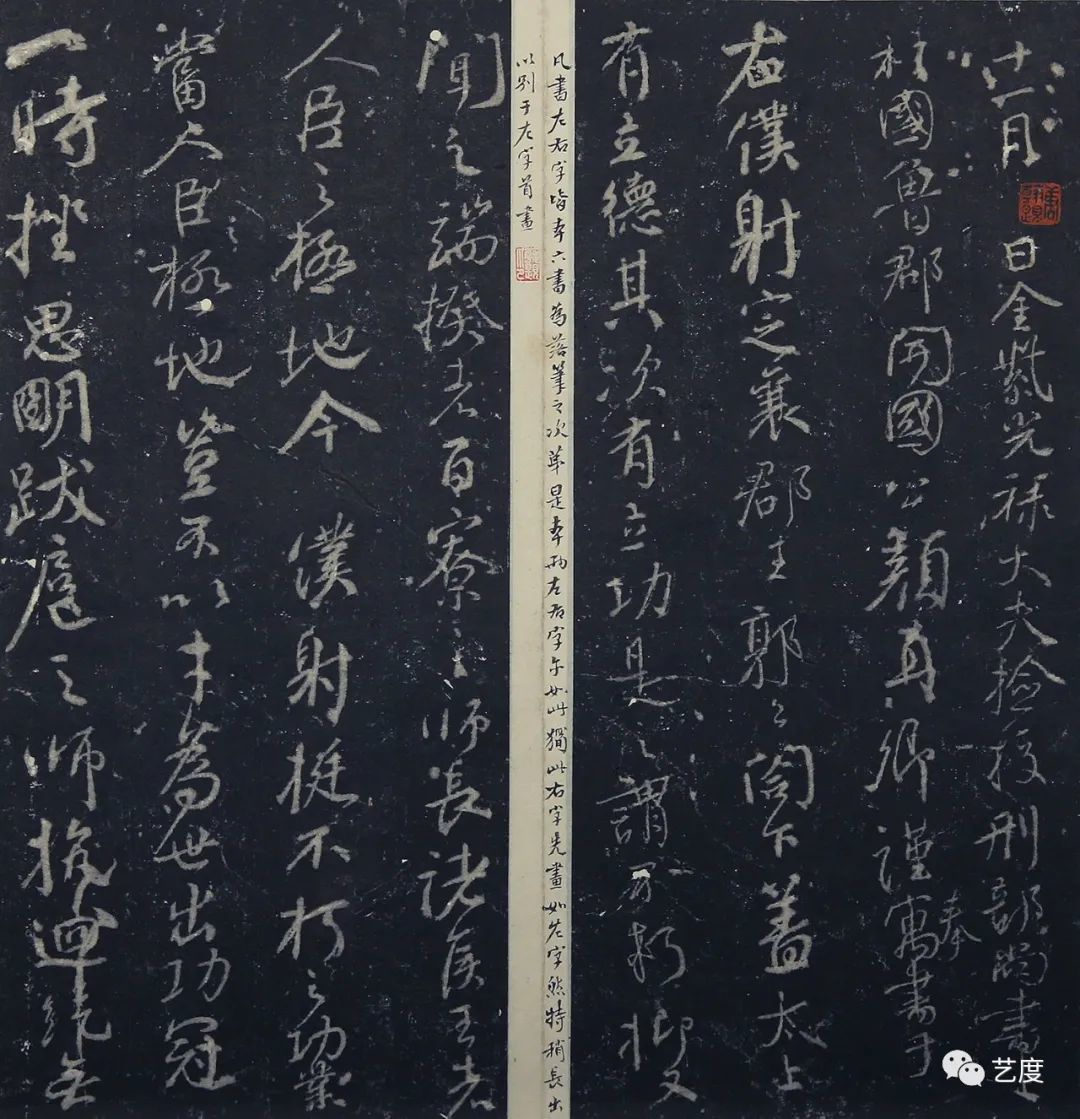 十一月 日金紫光祿大夫檢挍刑部尚書上
柱國魯郡開國公顏真卿謹奉寓書于
右僕射定襄郡王郭公閤下蓋太上
有立德其次有立功是之謂不朽抑又
凡書左右字皆本六書為落筆之次第是本兩左右字亦如此獨此右字先畫如左字然特稍長出
以別于左字首畫
聞之端揆者百寮之師長諸侯王者
人臣之極地今僕射挺不朽之功業
當人臣極地豈不以才為世出功冠
一時挫思明跋扈之師抗迴紇無
艺度